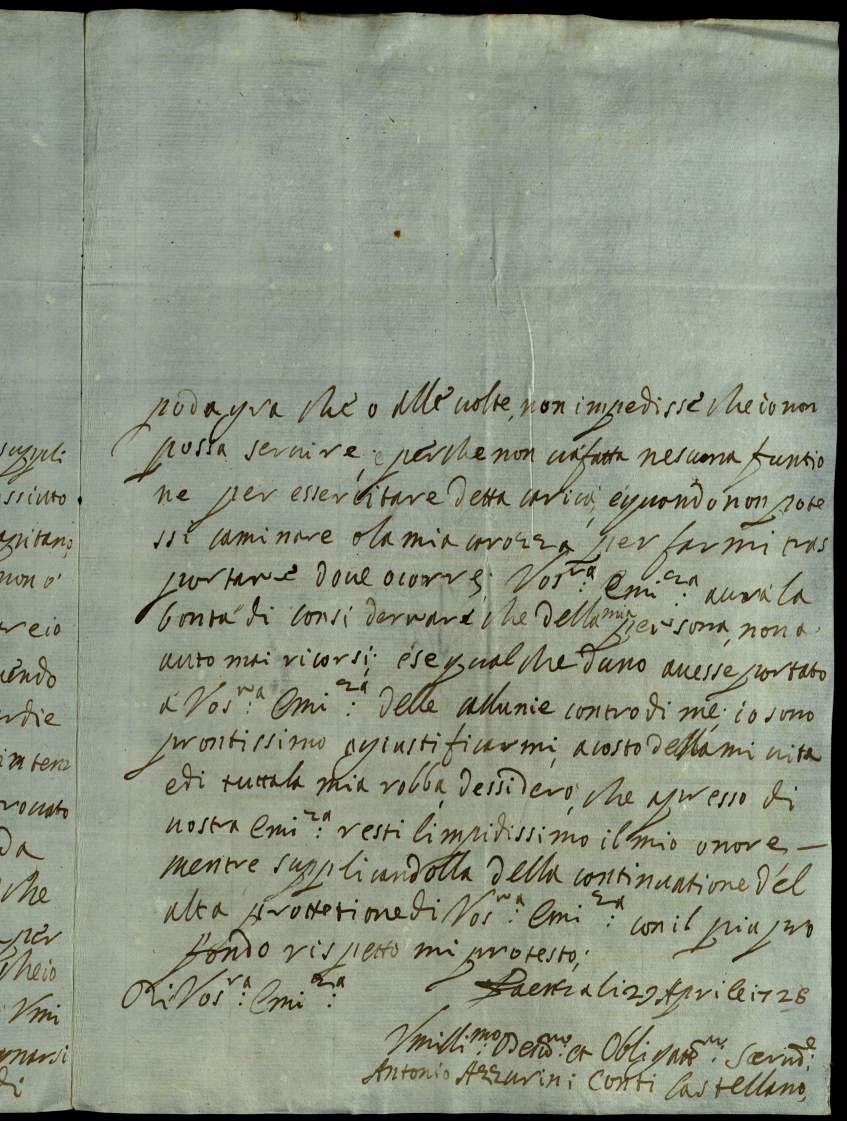 suppli
ssiuto
apitano
non o'
reio
uendo
erdie
in tenz
rouato
da
che
per
cheio
Vmi
gnarsi
di
podagra che o allè uolte, non impedissè che io non
possa seruire, e perche non uiè fatta nesuna funtio
ne per essercitare detta carica, e quando non pote
ssi caminare o la mia carozza per farmi tras
portare doue ocorre; Vos.ra Emi.za aurà la
bontà di considerare che della mia persona, non a
auto mai ricorsi; e se qual che duno auesse portato
à Vos.ra Emi.za delle callunie contro di mè; io sono
prontissimo a giustificarmi, a costo della mi uita
e di tutta la mia robba, dessidero, che apresso di
uostra Emi.za resti limpidissimo il mio onore, —
mentre supplicandolla della continuatione d'el
alta prottetione di Vos.ra Emi.za con il piu pro
fondo rispetto mi protesto;
Di Vos.ra Emi.za
Faenza li 29 Aprile 1728
Vmilli.mo Deuo.mo et Obligat.mo Seruid.e
Antonio Azzurini Conti Castellano,